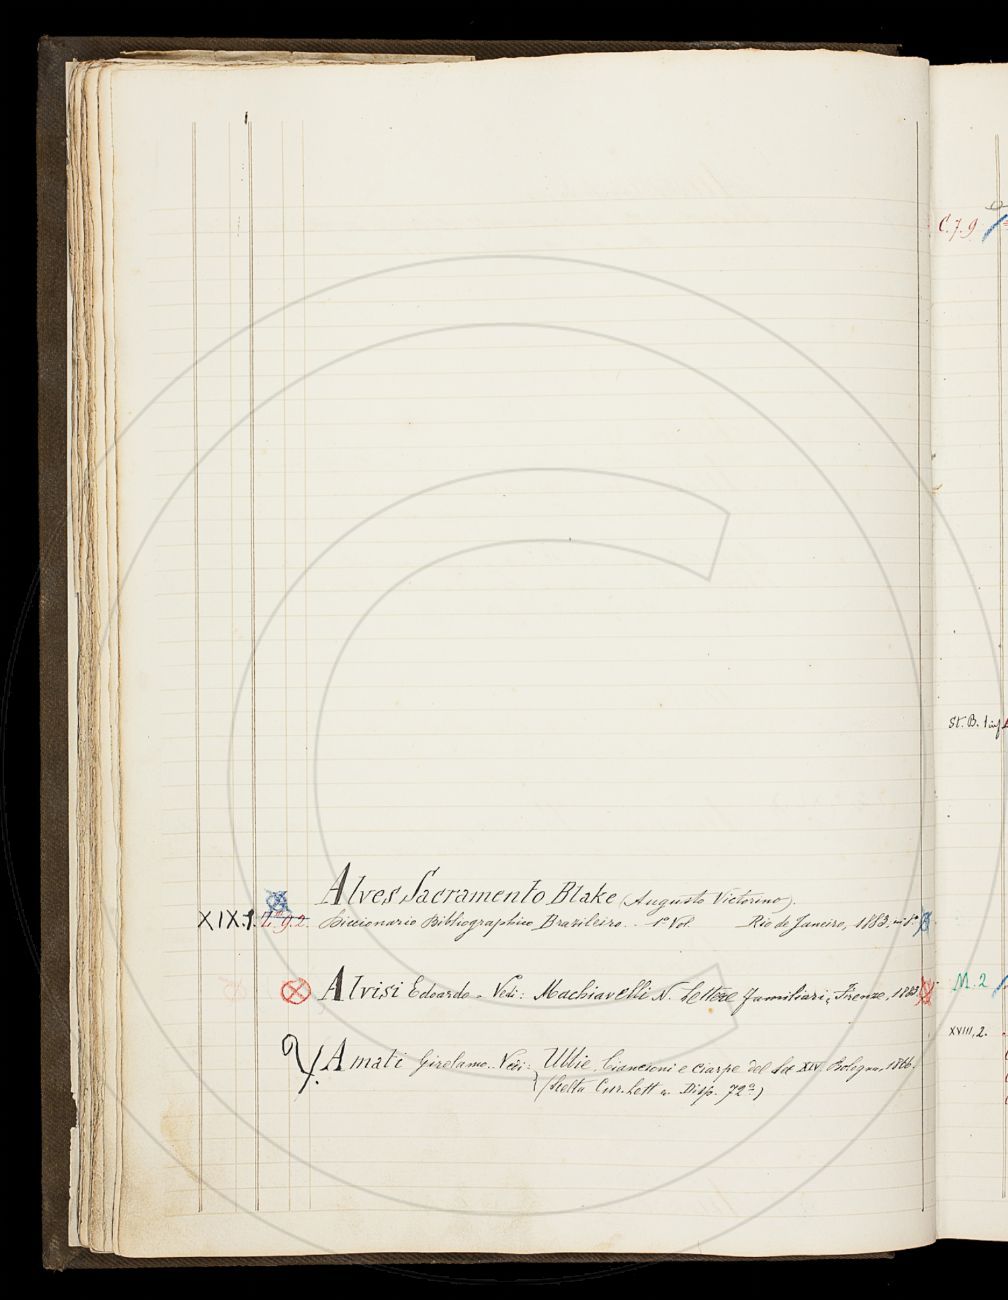 Alves Sacramento Blake (Augusto Victorino).
XIX.1. Z.9.2. Diccionario Bibliographico Brazileiro. 1º Vol. Rio de Janeiro, 1883. in 8º
Alvisi Edoardo - Vedi: Machiavelli N. Lettere familiari, Firenze, 1883
Amati Girolamo. Vedi: Ubbie, Ciancioni e ciarpe del Sec XIV. Bologna, 1866.
(Scelta Cur. Lett. Disp. 72ª)
C.7.9
St. B. 1
M. 2
XVIII, 2.